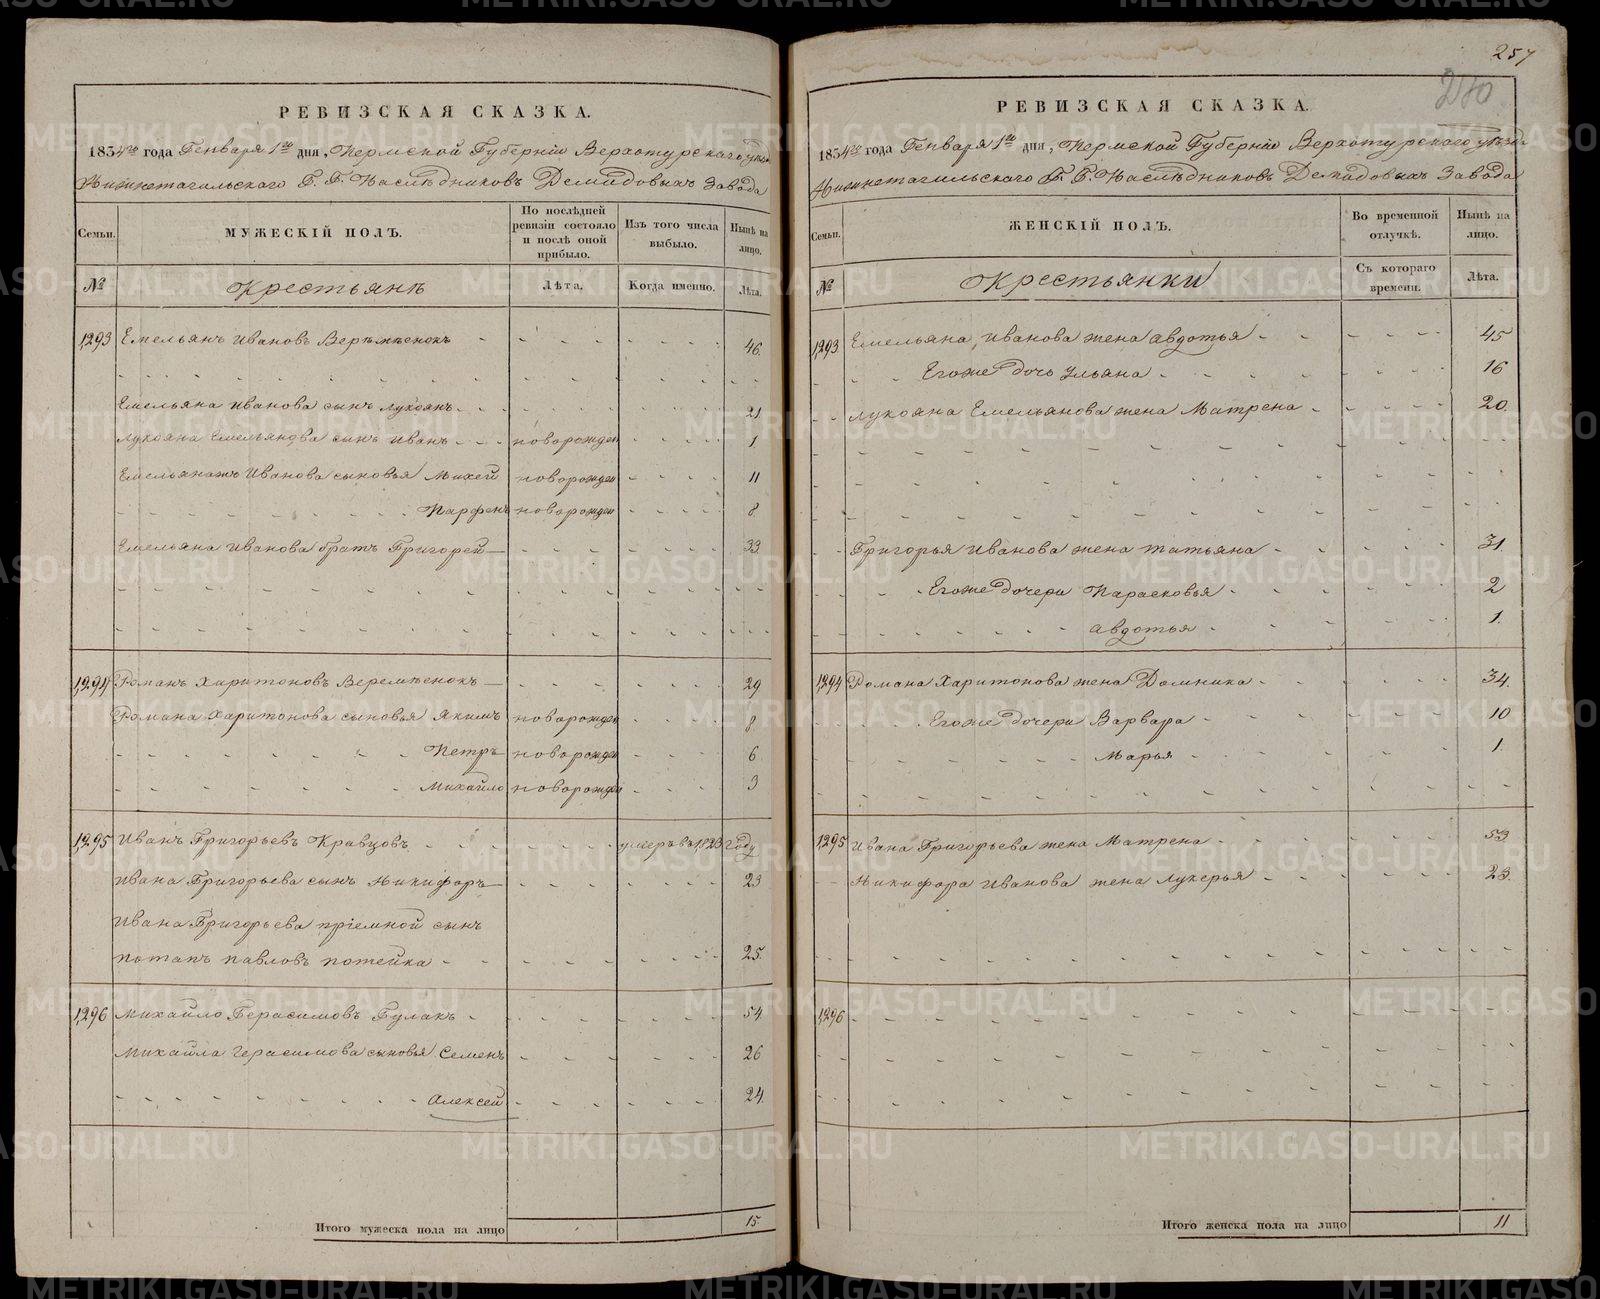 257
240
РЕВИЗСКАЯ СКАЗКА.
1834го года Генваря 1го дня, Пермской Губернiи Верхотурскаго уѣзда
Нижнетагильскаго Г. Г. Наслѣдниковъ Демидовыхъ Завода
Семьи.
МУЖЕСКIЙ ПОЛЪ.
По послѣдней ревизiи состояло и послѣ оной прибыло.
Изъ того числа выбыло.
Нынѣ на лицо.
№
Крестьянѣ
Лѣта.
Когда именно.
Лѣта.
1,293 Емельянъ Ивановъ Веремѣенокъ 46.
Емельяна Иванова сынъ Лукоянъ 21
Лукояна Емельянова сынъ Иванъ новорожден 1
Емельянажъ Иванова сыновья Михей новорожден 11
Парфенъ новорожден 8.
Емельяна Иванова братъ Григорей 33.
1,294 Романъ Харитоновъ Веремѣенокъ 29
Романа Харитонова сыновья Якимъ новорожден 8.
Петръ новорожден 6
Михайло новорожден 3
1,295 Иванъ Григорьевъ Кравцовъ умеръ въ 1,823 году
Ивана Григорьева сынъ Никифоръ 23
Ивана Григорьева прiемной сынъ
Потапъ Павловъ Потейка 25.
1,296 Михайло Герасимовъ Гулакъ 54
Михайла Герасимова сыновья Семенъ 26
Алексей 24.
Итого мужеска пола на лицо 15.
РЕВИЗСКАЯ СКАЗКА.
1834го года Генваря 1го дня, Пермской Губернiи Верхотурскаго уѣзда
Нижнетагильскаго Г. Г. Наслѣдниковъ Демидовыхъ Завода
Семьи.
ЖЕНСКIЙ ПОЛЪ.
Во временной отлучкѣ.
Нынѣ на лицо.
№
Крестьянки
Съ котораго времени.
Лѣта.
1,293 Емельяна Иванова жена Авдотья 45
Егоже дочь Ульяна 16
Лукояна Емельянова жена Матрена 20.
Григорья Иванова жена Татьяна 31.
Егоже дочери Парасковья 2
Авдотья 1.
1,294 Романа Харитонова жена Домника 34.
Егоже дочери Варвара 10
Марья 1.
1,295 Ивана Григорьева жена Матрена 53
Никифора Иванова жена Лукерья 23.
1,296
Итого женска пола на лицо 11
METRIKI.GASO-URAL.RU